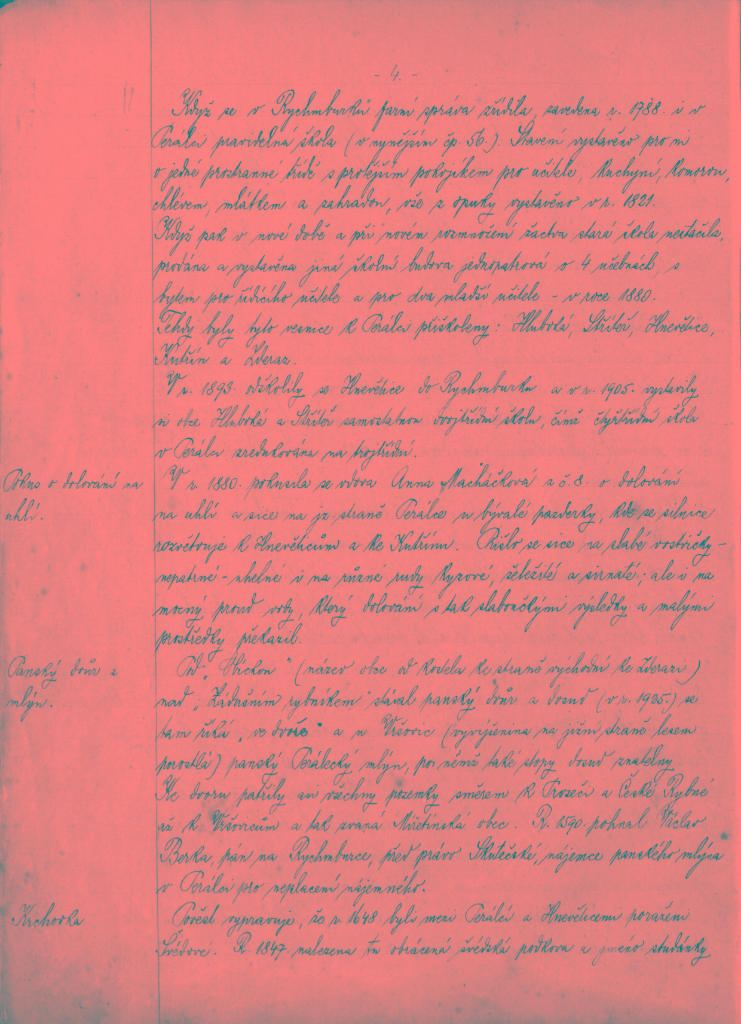 - 4. -
Když se v Rychmburku farní správa zřídila, zavedena r. 1788. i v
Perálci pravidelná škola (v nynějším čp. 56.). Stavení vystavěno pro ni
o jedné prostranné třídě s protejším pokojíkem pro učitele, kuchyní, komorou,
chlévem, mlátkem a zahradou, vše z opuky vystavěno v r. 1821.
Když pak v nové době a při novém rozmnožení žactva stará škola nestačila,
prodána a vystavěna jiná školní budova jednopatrová o 4 učebnách, s
bytem pro řídícího učitele a pro dva mladší učitele - v roce 1880.
Tehdy byly tyto vesnice k Perálci přiškoleny: Hluboká, Střítěž, Hněvětice,
Kutřín a Zderaz.
V r. 1893. odškolily se Hněvětice do Rychmburku a v r. 1905. vystavily
si obce Hluboká a Střítěž samostatnou dvojtřídní školu, čímž čtyřtřídní škola
v Perálci zredukována na trojtřídní.
Pokus o dolování na
uhlí.
V r. 1880. pokusila se vdova Anna Macháčková z č. 8. o dolování
na uhlí a sice na jz straně Perálce u bývalé pazderky, kde se silnice
rozvětvuje k Hněvěticům a ke Kutřínu. Přišlo se sice na slabé vrstvičky -
nepatrné - uhelné i na různé rudy kyzové, železité a sirnaté; ale i na
mocný proud vody, který dolování s tak slaboučkými výsledky a malými
prostředky překazil.
Panský dvůr a
mlýn.
Při „Hickou" (název obce od kostela ke straně východní ke Zderazi)
nad „Zádušním rybníkem" stával panský dvůr a dosud (v r. 1925.) se
tam říká „ve dvoře" a u Vršovic (vyvýšenina na jižní straně lesem
porostlá) panský Perálecký mlýn, po němž také stopy dosud znatelny.
Ke dvoru patřily asi všechny pozemky směrem k Proseči a České Rybné
až k Vršovicům a tak zvaná Miřetínská obec. R. 1590. pohnal Václav
Berka, pán na Rychmburce, před právo Skutečské, nájemce panského mlýna
v Perálci pro neplacení nájemného.
Krchovka
Pověst vypravuje, že v 1648 byli mezi Perálcí a Hněvěticemi poraženi
Švédové. R. 1847. nalezena tu obrácená švédská podkova a jméno studánky